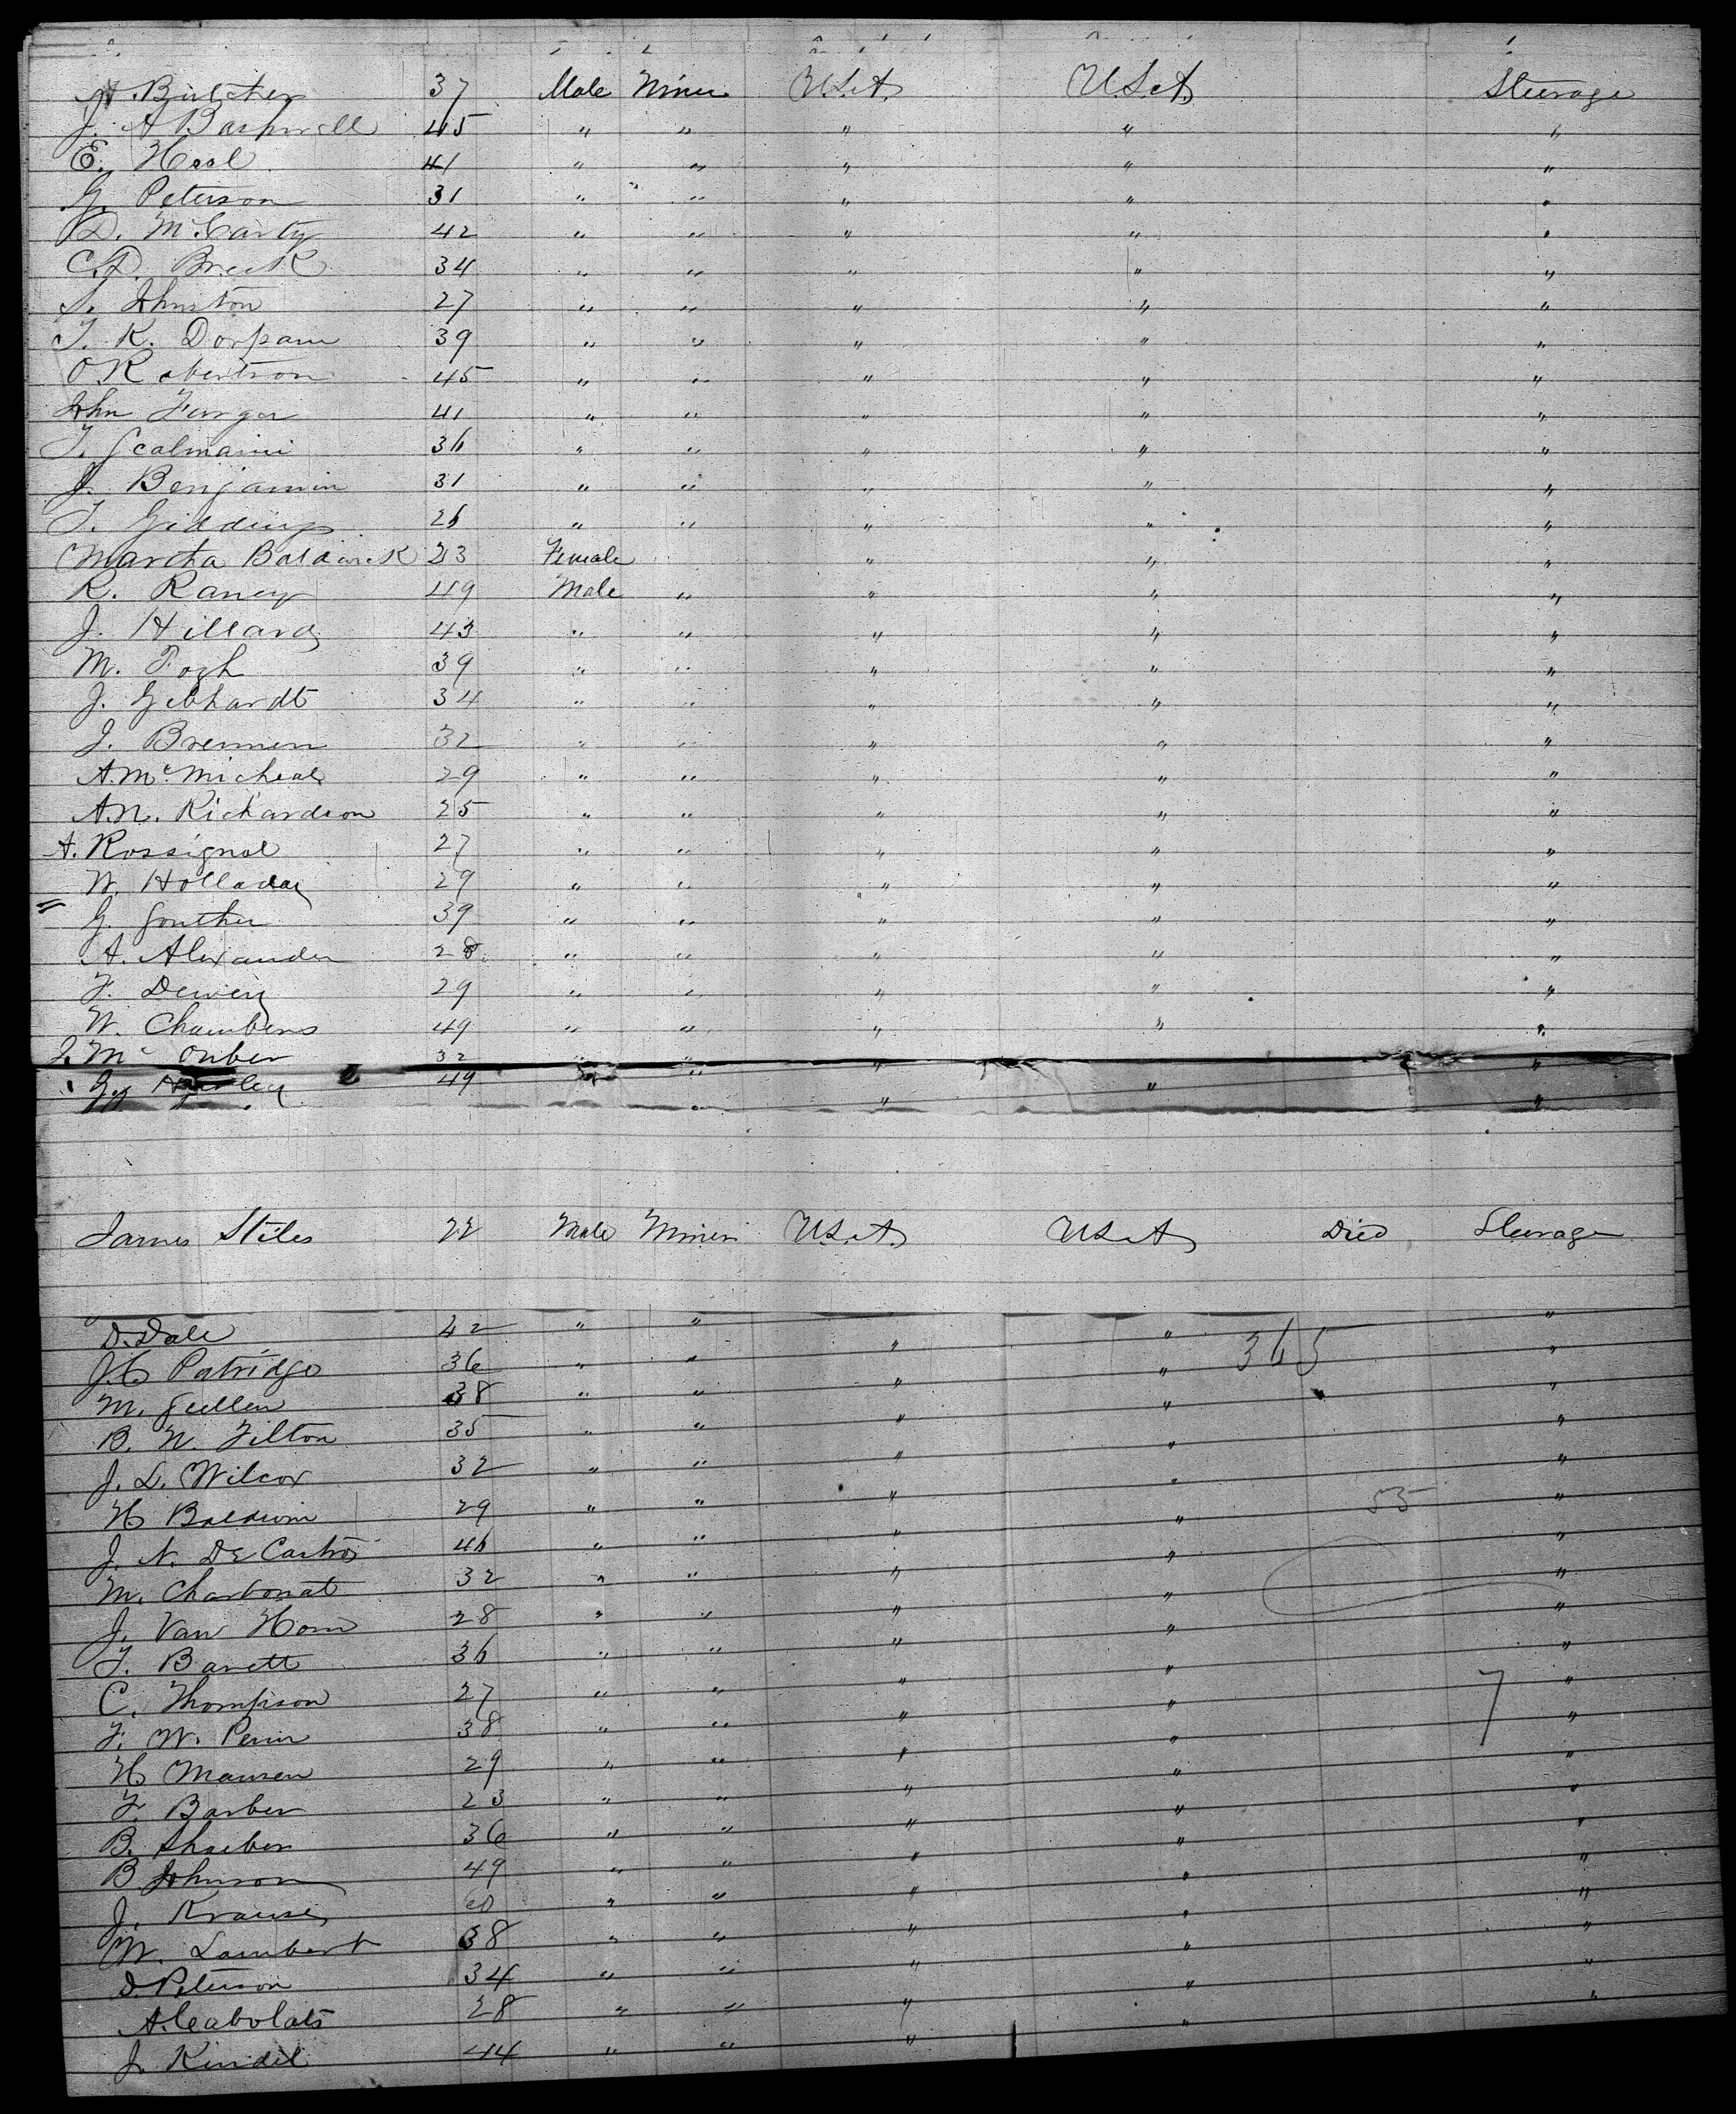 A. Butcher 37 Male Miner U.S.A. U.S.A. Steerage
J. A Bashwell 45 " " " " "
E. Heal 41 " " " " "
G. Peterson 31 " " " " "
D. McCarty 42 " " " " "
C.D. Breck 34 " " " " "
S. Johnston 27 " " " " "
T. K. Dorpam 39 " " " " "
O Robertson 45 " " " " "
John Furger 41 " " " " "
T. Scalmanini 36 " " " " "
J. Benjamin 31 " " " " "
T. Giddings 26 " " " " "
Martha Baldwick 23 Female " " "
R. Raney 49 Male " " " "
J. Hillard 43 " " " " "
M. Fogh 39 " " " " "
J. Gebhardt 34 " " " " "
J. Brennen 32 " " " " "
A. McMicheal 29 " " " " "
A.N. Richardson 25 " " " " "
A. Rossignol 27 " " " " "
W. Holladay 29 " " " " "
G. Gouther 39 " " " " "
A. Alexander 28 " " " " "
F. Dewey 29 " " " " "
W. Chambers 49 " " " " "
J. Mc Omber 32 " " " " "
G. 49 " " " " "
James Stiles Male Miner U.S.A. U.S.A Died Steerage
D. Dale 42 " " " " "
J.C Patridge 36 " " " " 365 "
M. Gullen 38 " " " " "
B. W. Tilton 35 " " " " "
J. L. Wilcox 32 " " " " "
H Baldwin 29 " " " " 55 "
J. N. De Castro 46 " " " " "
M. Charbonat 32 " " " " "
J. Van Horn 28 " " " " "
T. Barrett 36 " " " " "
C. Thompson 27 " " " " 7 "
F. W. Perin 38 " " " " "
H Mansen 29 " " " " "
F. Barber 23 " " " " "
B. Shaeber 36 " " " " "
B Johnson 49 " " " " "
J. Krause 60 " " " " "
W. Lambert 38 " " " " "
D. Peterson 34 " " " " "
A. Cabolats 28 " " " " "
J. Kindel 44 " " " "